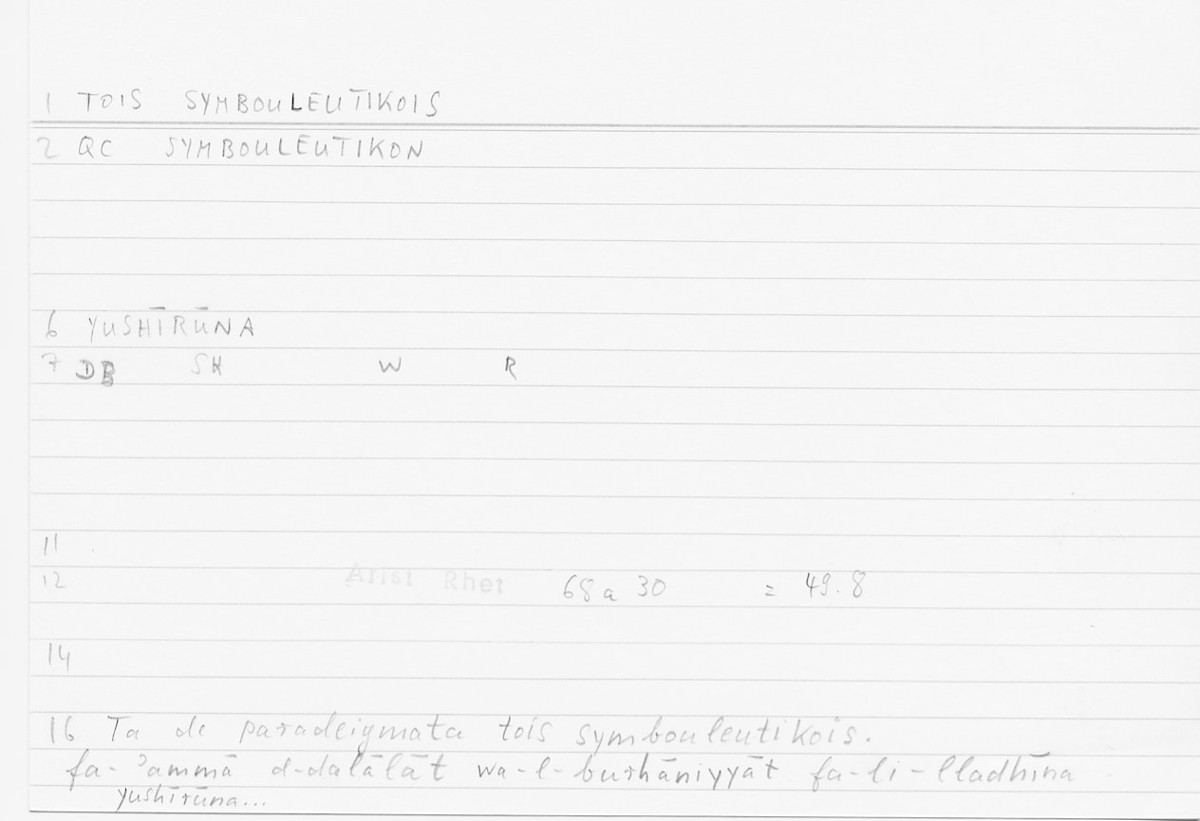 1 TOIS SYMBOULEUTIKOIS
2 QC SYMBOULEUTIKON
6 YUSHĪRŪNA
7 DB SH W R
11
12 Arist Rhet 68 a 30 = 49.8
14
16 Ta de paradeigmata tois symbouleutikois.
fa-ʾammā d-dalālāt wa-l-burhāniyyāt fa-li-lladhīna
yushīrūna...